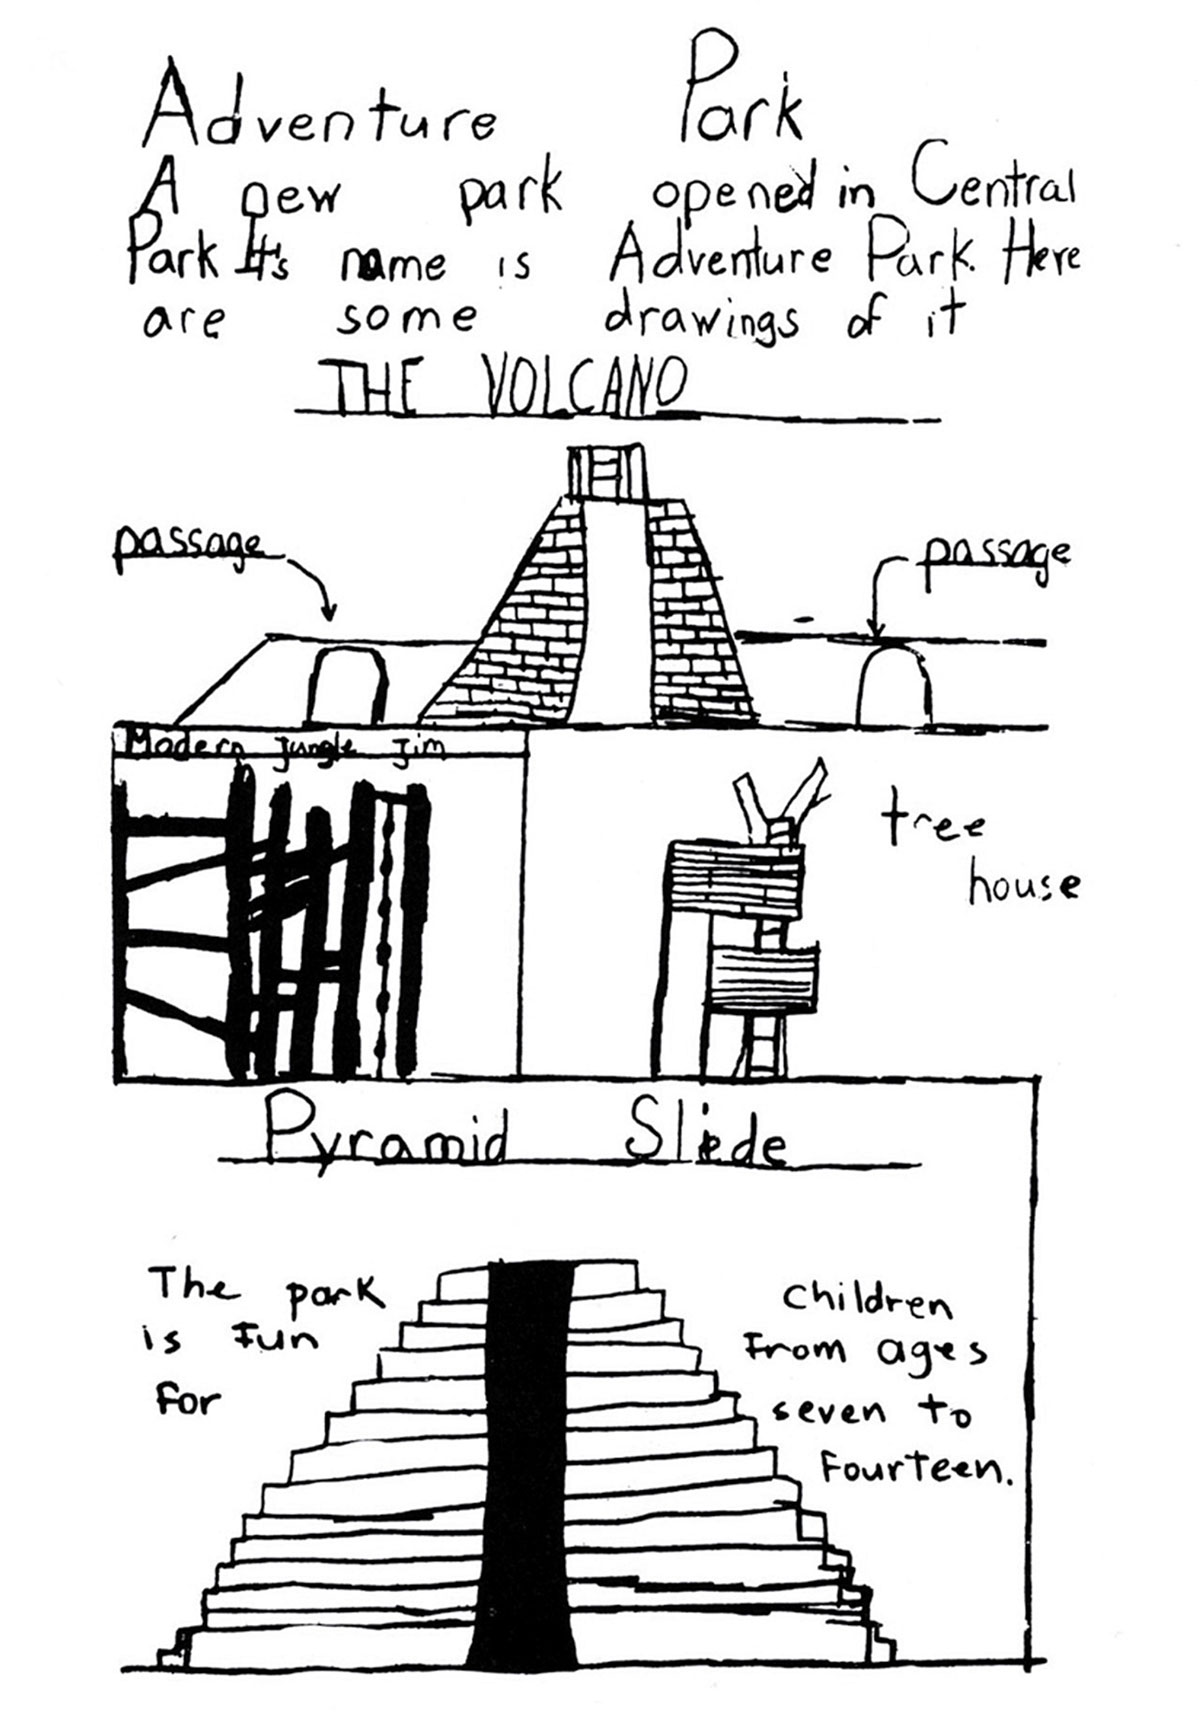 Adventure Park
A new park opened in Central
Park It's name is Adventure Park. Here
are some drawings of it
THE VOLCANO
passage
passage
Modern jungle jim
tree
house
Pyramid Slide
The park
is Fun
For
children
From ages
seven to
Fourteen.